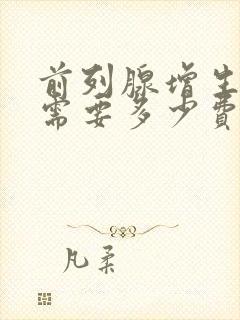 前列腺增生
需要多少费
凡柔